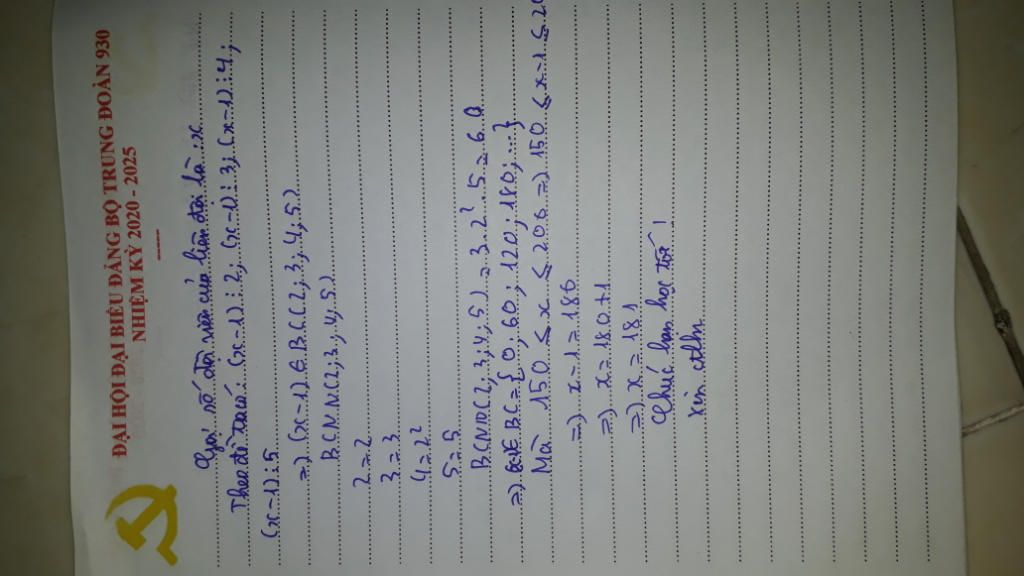 ĐẠI HỘI ĐẠI BIỂU ĐẢNG BỘ TRUNG ĐOÀN 930
NHIỆM KỲ 2020 - 2025
Gọi số đội viên của liên đội là : x
Theo đề ta có : (x-1) ⋮ 2 ; (x-1) ⋮ 3 ; (x-1) ⋮ 4 ;
(x-1) ⋮ 5
=) (x-1) ∈ BC(2; 3; 4; 5)
BCNN(2; 3; 4; 5)
2 = 2
3 = 3
4 = 2²
5 = 5
BCNN(2; 3; 4; 5) = 3 . 2² . 5 = 60
=) BC = { 0 ; 60 ; 120 ; 180 ; ... }
Mà 150 ≤ x ≤ 206 =) 150 ≤ x-1 ≤ 20
=) x - 1 = 186
=) x = 180 + 1
=) x = 181
Chúc bạn học tốt !
xin ctlhn